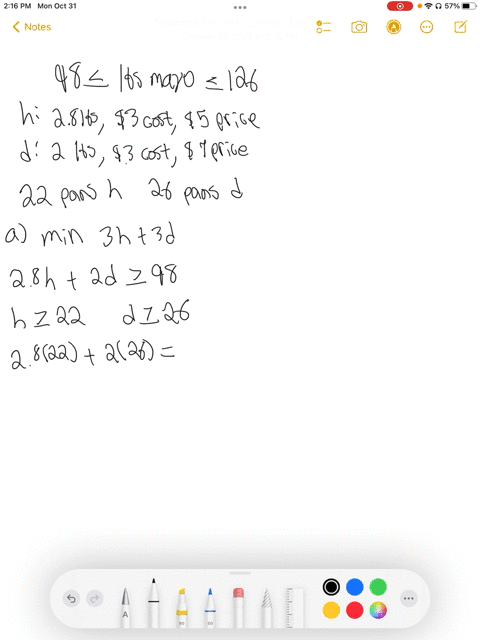 2:16 PM Mon Oct 31
57%
Notes
98 ≤ lbs mayo ≤ 126
h: 2.8 lbs, $3 cost, $5 price
d: 2 lbs, $3 cost, $7 price
22 pans h 26 pans d
a) min 3h + 3d
2.8h + 2d ≥ 98
h ≥ 22 d ≥ 26
2.8(22) + 2(26) =
A